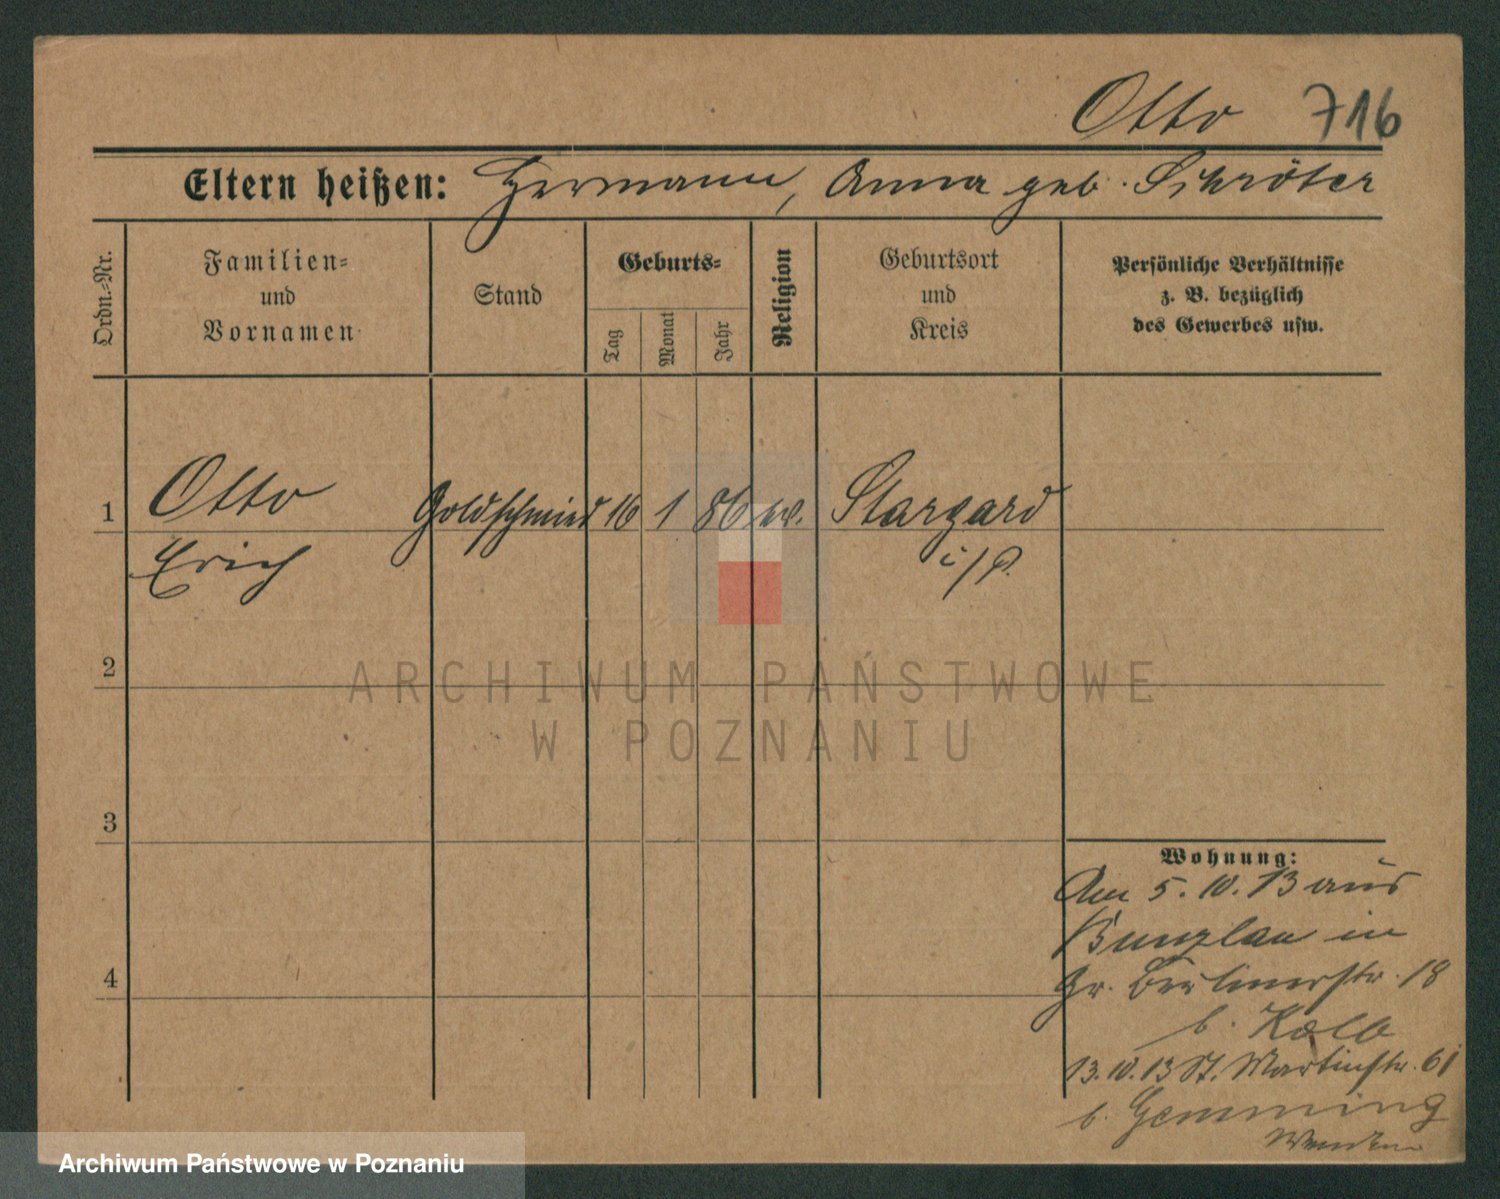 Otto 716
Eltern heißen: Hermann, Anna geb. Schröter
Ordn.-Nr.
Familien-
und
Vornamen
Stand
Geburts-
Tag
Monat
Jahr
Religion
Geburtsort
und
Kreis
Persönliche Verhältnisse
z. B. bezüglich
des Gewerbes usw.
1 Otto Goldschmied 16 1 86 ev. Stargard
Erich i/P.
2
3
4
Wohnung:
Am 5.10.13 aus
Bunzlau in
Gr. Berlinerstr. 18
b. Kolb
13.10.13 St. Martinstr. 61
b. Gemming
Wenden
ARCHIWUM PAŃSTWOWE
W POZNANIU
Archiwum Państwowe w Poznaniu